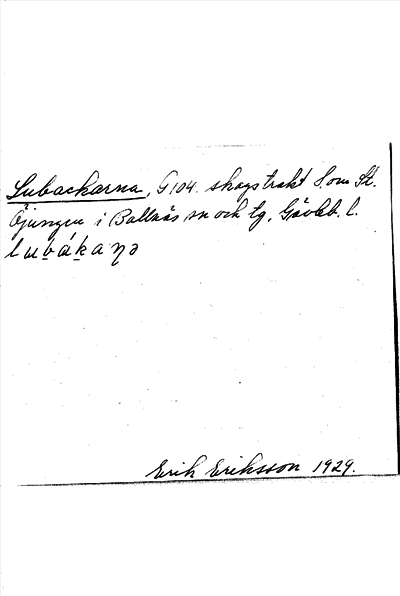 Lubackarna, G104. skogstrakt S om St.
Öjungen i Bollnäs sn och tg, Gävleb. l.
lubákaṇə
Erik Eriksson 1929.